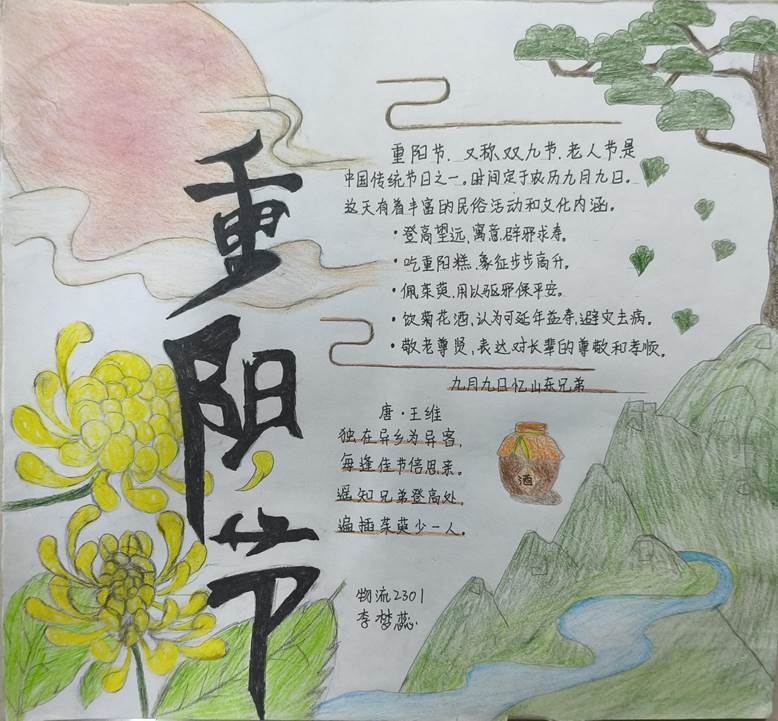 重阳节
重阳节，又称双九节、老人节是
中国传统节日之一。时间定于农历九月九日。
这天有着丰富的民俗活动和文化内涵。
·登高望远，寓意辟邪求寿。
·吃重阳糕，象征步步高升。
·佩茱萸，用以驱邪保平安。
·饮菊花酒，认为可延年益寿，避灾去病。
·敬老尊贤，表达对长辈的尊敬和孝顺。
九月九日忆山东兄弟
唐·王维
独在异乡为异客，
每逢佳节倍思亲。
遥知兄弟登高处，
遍插茱萸少一人。
酒
物流2301
李梦蕊